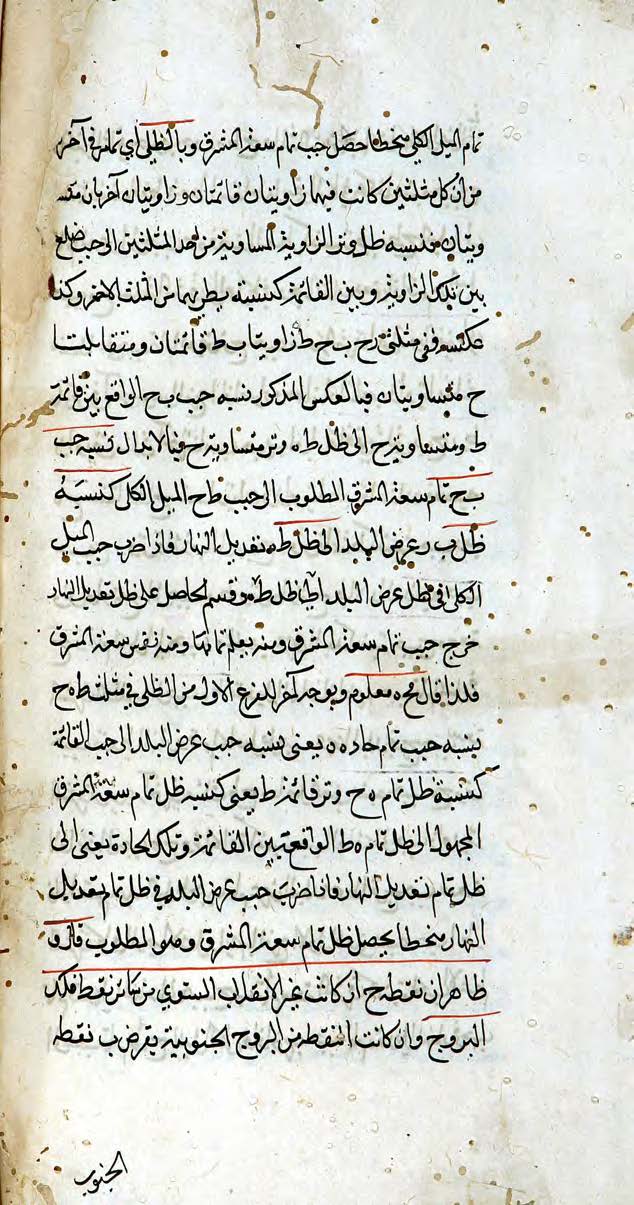 تمام الميل الكلى منحطا حصل جيب تمام سعة المشرق وبالظلى اى تمام فى آخر
من ان كل مثلثين كانت فيهما زاويتان قائمتان وزاويتان آخريان متسا
ويتان فنسبه ظل وتر الزاوية المساوية من احد المثلثين الى جيب ضلع
بين تلك الزاوية وبين القائمة كنسبة نظيريهما من المثلث الاخر وكذا
عكسه ففى مثلثى رح ب ح ط ه زاويتا ب ط قائمتان ومتقابلتا
ح متساويتان فبالعكس المذكور نسبه جيب ب ح الواقع بين قائمة
ط ومتساوية ح الى ظل ط ه وتر متساوية ح فبالابدال نسبه جيب
ب ح تمام سعة المشرق المطلوب الى جيب ط ح الميل الكلى كنسبة
ظل ب ر عرض البلد الى ظل ط ه تعديل النهار فاذا ضرب جيب الميل
الكلى فى ظل عرض البلد ظل ط ه وقسم الحاصل على ظل تعديل النهار
خرج جيب تمام سعة المشرق وبه يعلم تمامها ومنه نفس سعة المشرق
فلذا قال مح ه معلوم وبوجه آخر للفرع الاول من الظلى فى مثلث ط ه ح
نسبه جيب تمام حاده ه يعنى نسبه جيب عرض البلد الى جيب القائمة
كنسبة ظل تمام ه ح وتر قائمة ط يعنى كنسبه ظل تمام سعة المشرق
المجهول الى ظل تمام ه ط الواقع بين القائمة وتلك الحادة يعنى الى
ظل تمام تعديل النهار فاذا ضرب جيب عرض البلد فى ظل تمام تعديل
النهار منحطا يحصل ظل تمام سعة المشرق وهو المطلوب قال و
ظاهر ان نقطه ح ان كانت غير الانقلاب الستوى من سائر نقط فلك
البروج وان كانت النقطه من البروج الجنوبية يفرض ب نقطه
الجنوب